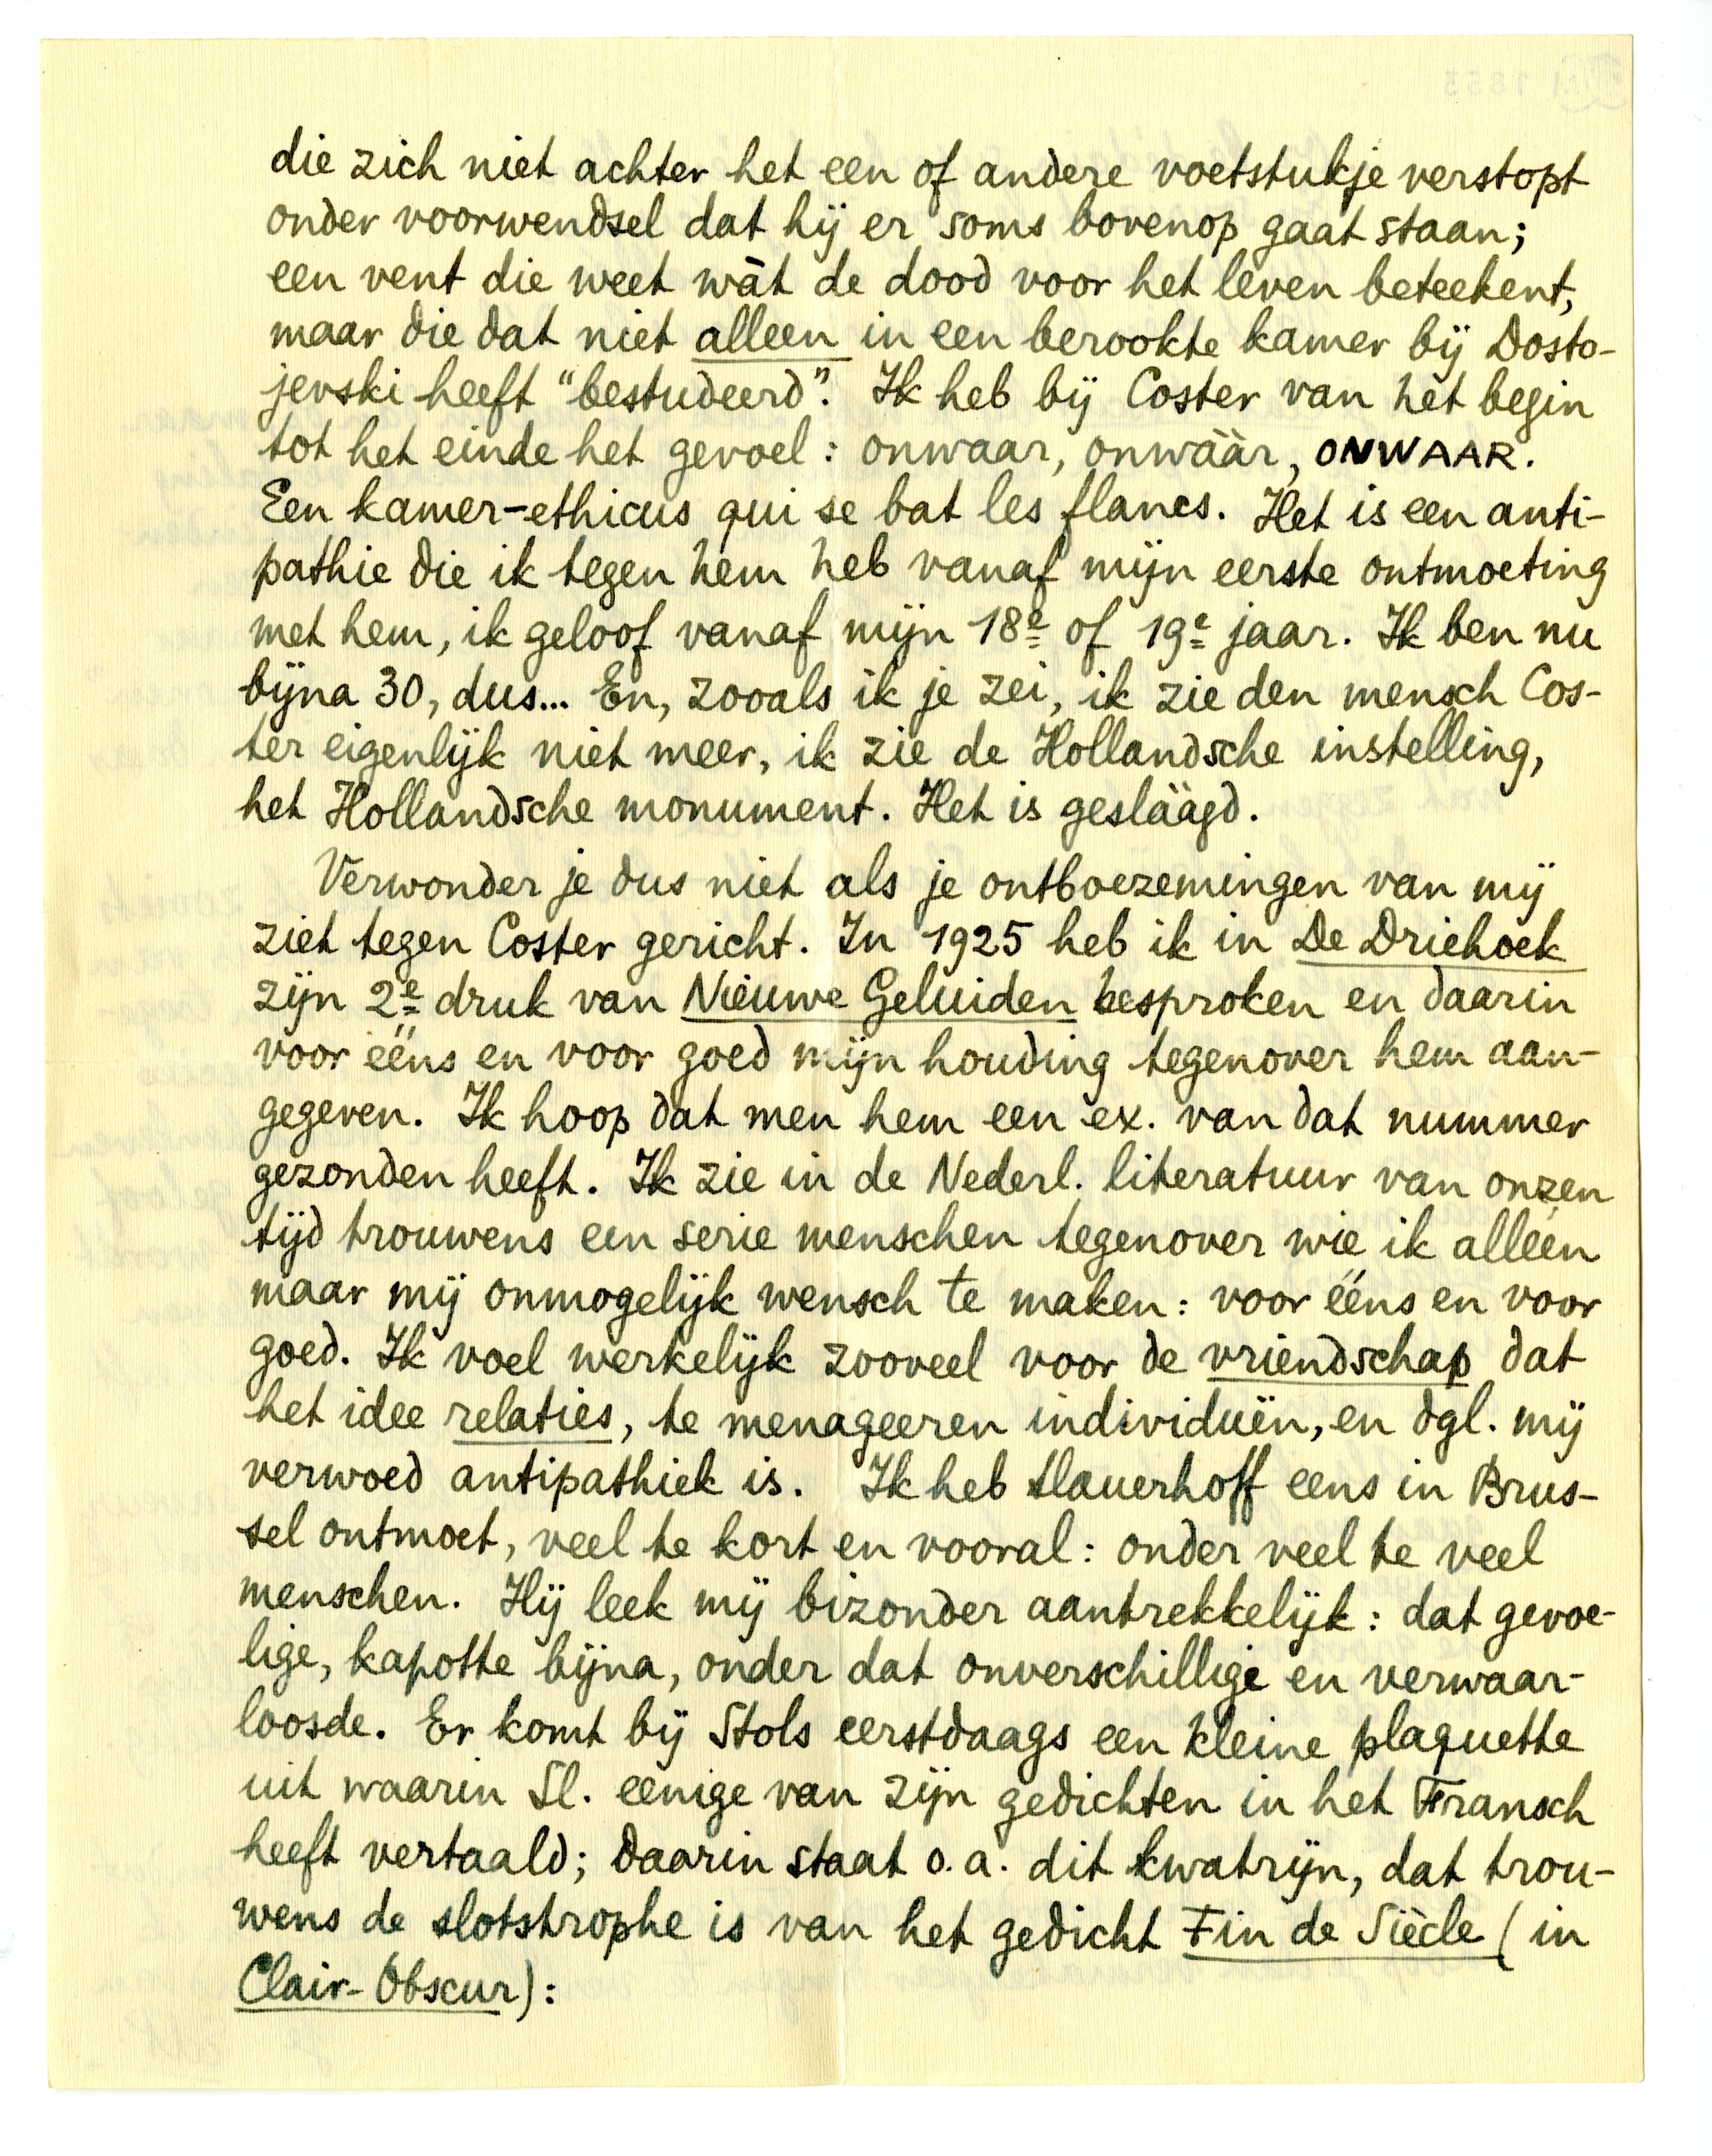 die zich niet achter het een of andere voetstukje verstopt
onder voorwendsel dat hij er soms bovenop gaat staan;
een vent die weet wàt de dood voor het leven beteekent,
maar die dat niet alleen in een berookte kamer bij Dosto-
jevski heeft “bestudeerd”. Ik heb bij Coster van het begin
tot het einde het gevoel: onwaar, onwààr, ONWAAR.
Een kamer-ethicus qui se bat les flancs. Het is een anti-
pathie die ik tegen hem heb vanaf mijn eerste ontmoeting
met hem, ik geloof vanaf mijn 18e of 19e jaar. Ik ben nu
bijna 30, dus... En, zooals ik je zei, ik zie den mensch Cos-
ter eigenlijk niet meer, ik zie de Hollandsche instelling,
het Hollandsche monument. Het is geslààgd.
Verwonder je dus niet als je ontboezemingen van mij
ziet tegen Coster gericht. In 1925 heb ik in De Driehoek
zijn 2e druk van Nieuwe Geluiden besproken en daarin
voor ééns en voor goed mijn houding tegenover hem aan-
gegeven. Ik hoop dat men hem een ex. van dat nummer
gezonden heeft. Ik zie in de Nederl. literatuur van onzen
tijd trouwens een serie menschen tegenover wie ik alléén
maar mij onmogelijk wensch te maken: voor ééns en voor
goed. Ik voel werkelijk zooveel voor de vriendschap dat
het idee relaties, te menageeren individuën, en dgl. mij
verwoed antipathiek is. Ik heb Slauerhoff eens in Brus-
sel ontmoet, veel te kort en vooral: onder veel te veel
menschen. Hij leek mij bizonder aantrekkelijk: dat gevoe-
lige, kapotte bijna, onder dat onverschillige en verwaar-
loosde. Er komt bij Stols eerstdaags een kleine plaquette
uit waarin Sl. eenige van zijn gedichten in het Fransch
heeft vertaald; daarin staat o.a. dit kwatrijn, dat trou-
wens de slotstrophe is van het gedicht Fin de Siècle (in
Clair-Obscur):